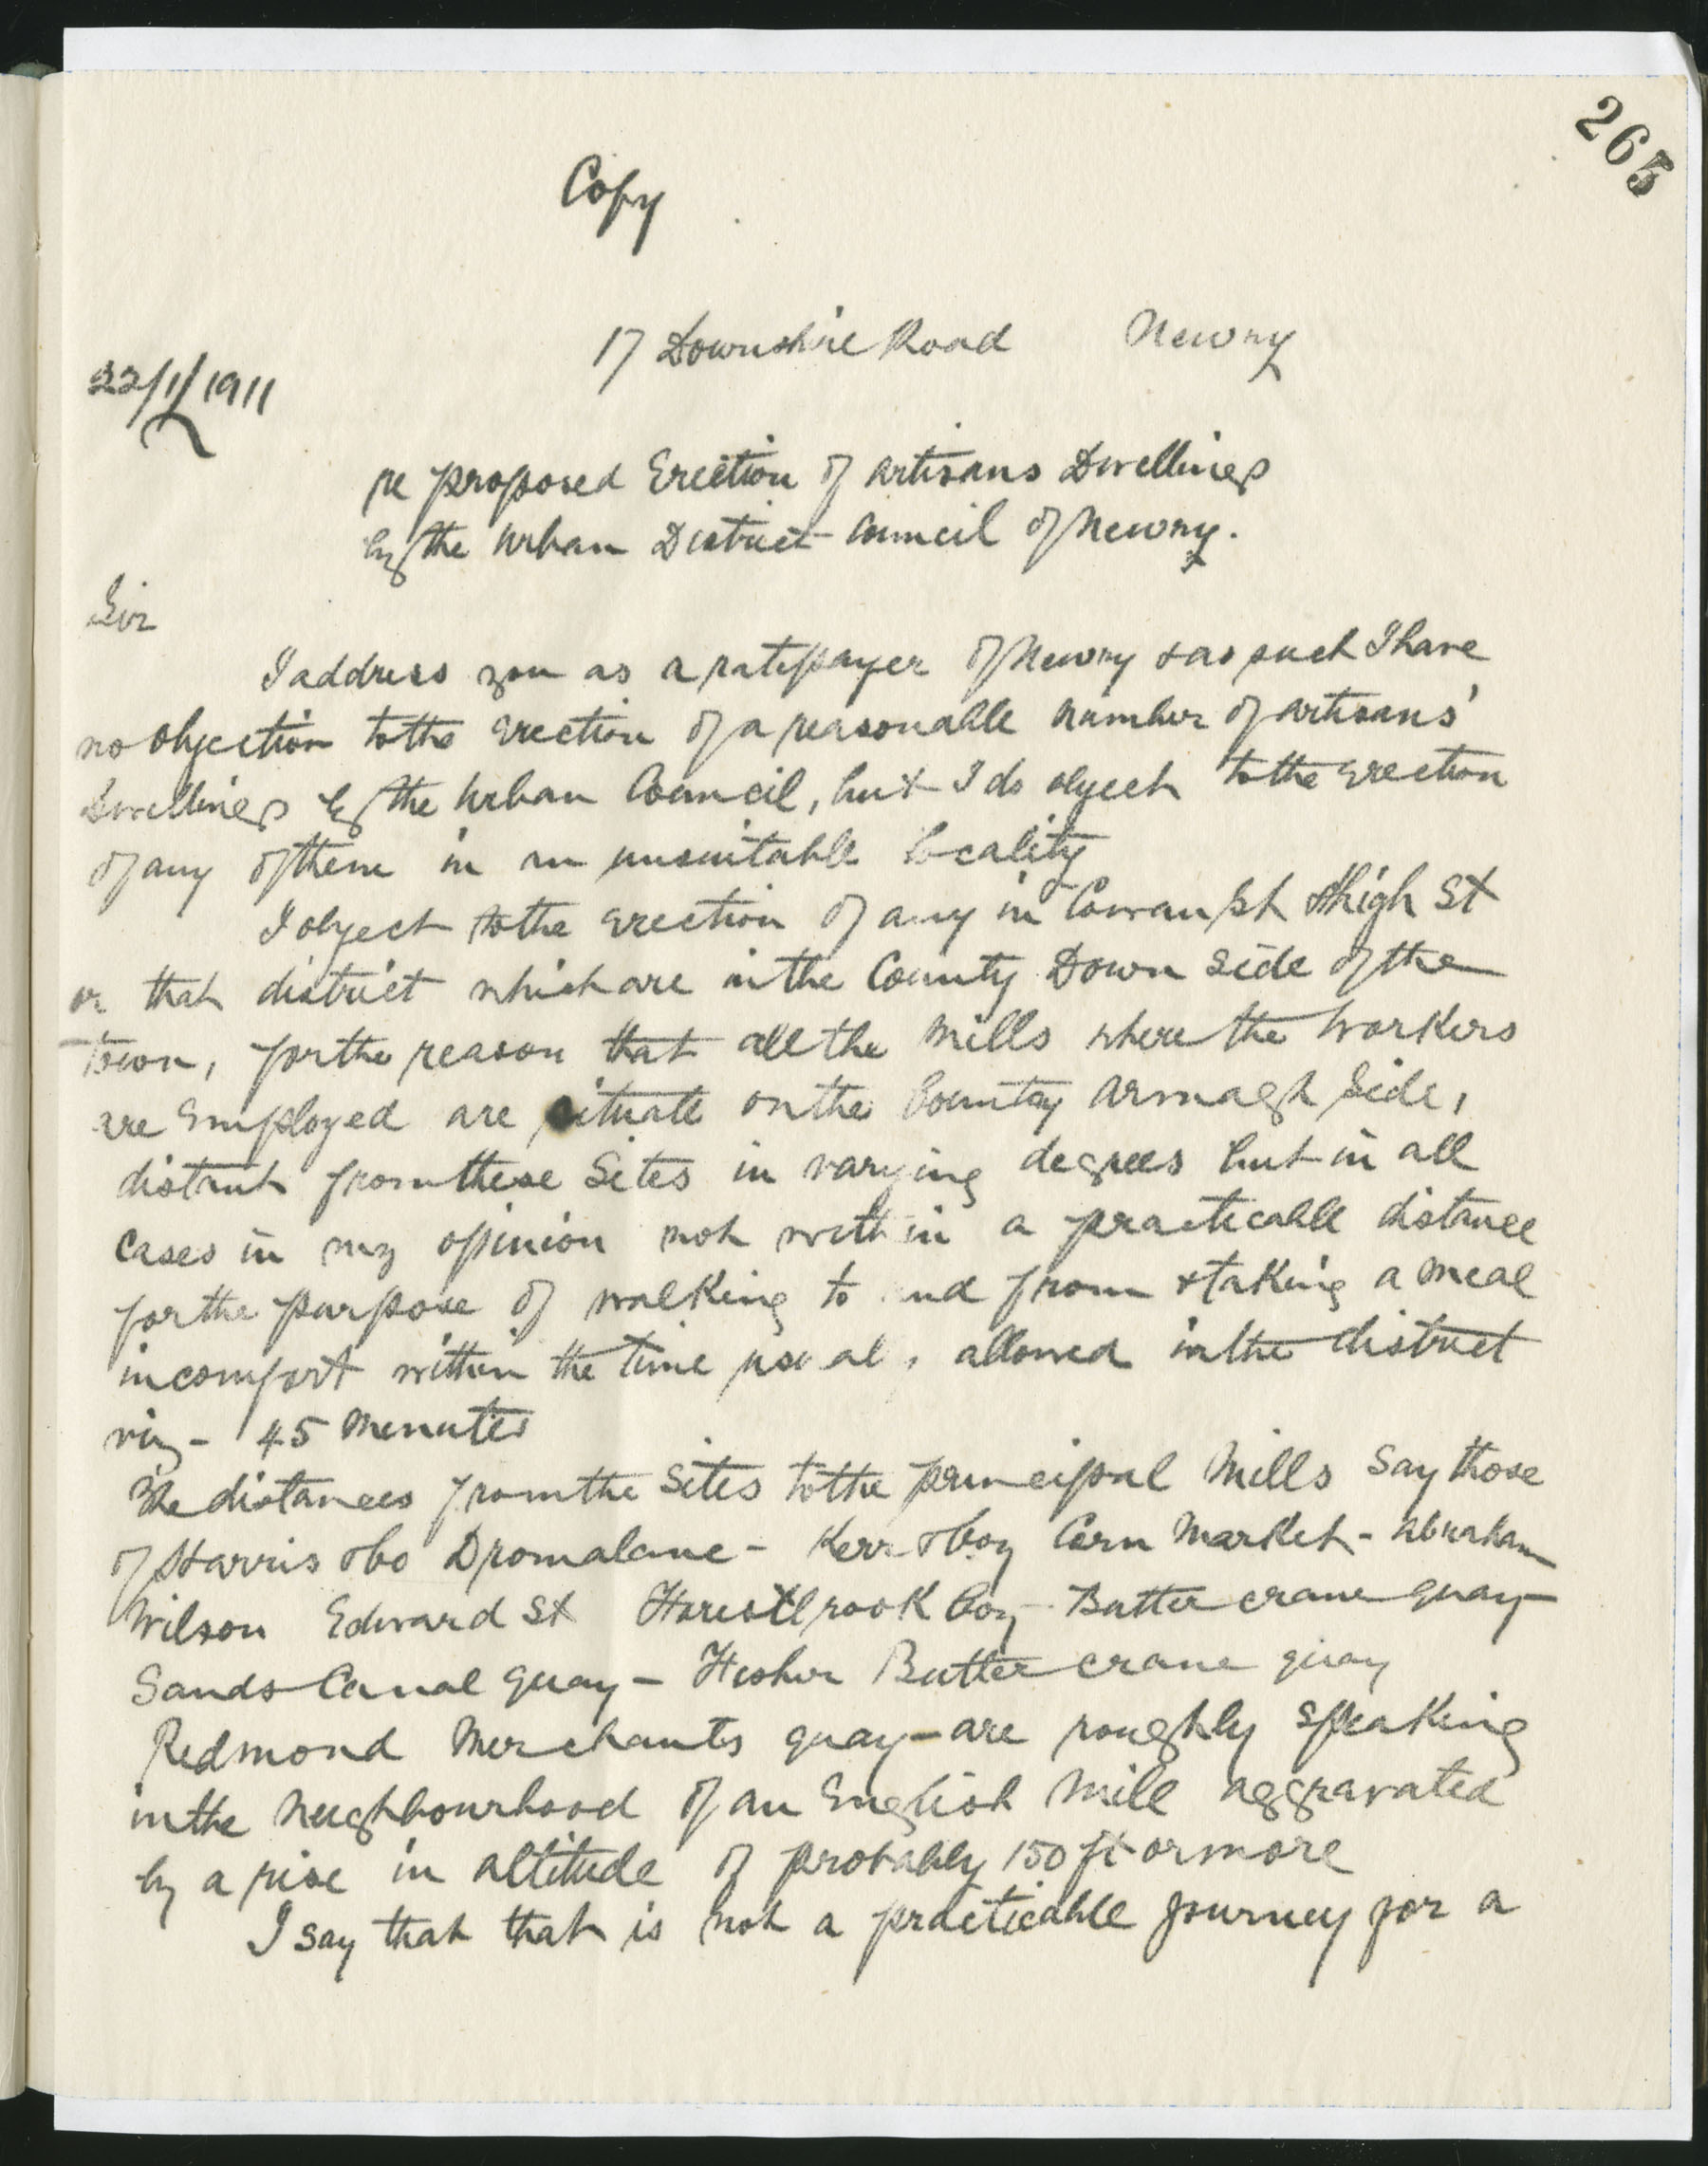 265
Copy
17 Downshire Road Newry
22/1/1911
re proposed Erection of artisans Dwellings
by the Urban District Council of Newry.
Sir
I address you as a ratepayer of Newry & as such I have
no objection to the erection of a reasonable number of artisans'
Dwellings by the Urban Council, but I do object to the erection
of any of them in an unsuitable locality
I object to the erection of any in Cowan St & High St
or that district which are in the County Down side of the
Town, for the reason that all the Mills where the workers
are Employed are situate on the County Armagh Side,
distant from these Sites in varying degrees but in all
cases in my opinion not within a practicable distance
for the purpose of walking to and from & taking a meal
in comfort within the time usual, allowed in the district
viz - 45 Minutes
The distances from the Sites to the principal Mills Say those
of Harris & Co Dromalane - Kerr & Coy Corn Market - Abraham
Wilson Edward St Coy - Butter crane quay -
Sands Canal quay - Fisher Butter crane quay
Redmond Merchants quay - are roughly speaking
in the Neighbourhood of an English Mile aggravated
by a rise in altitude of probably 150 ft or more
I say that that is not a practicable journey for a